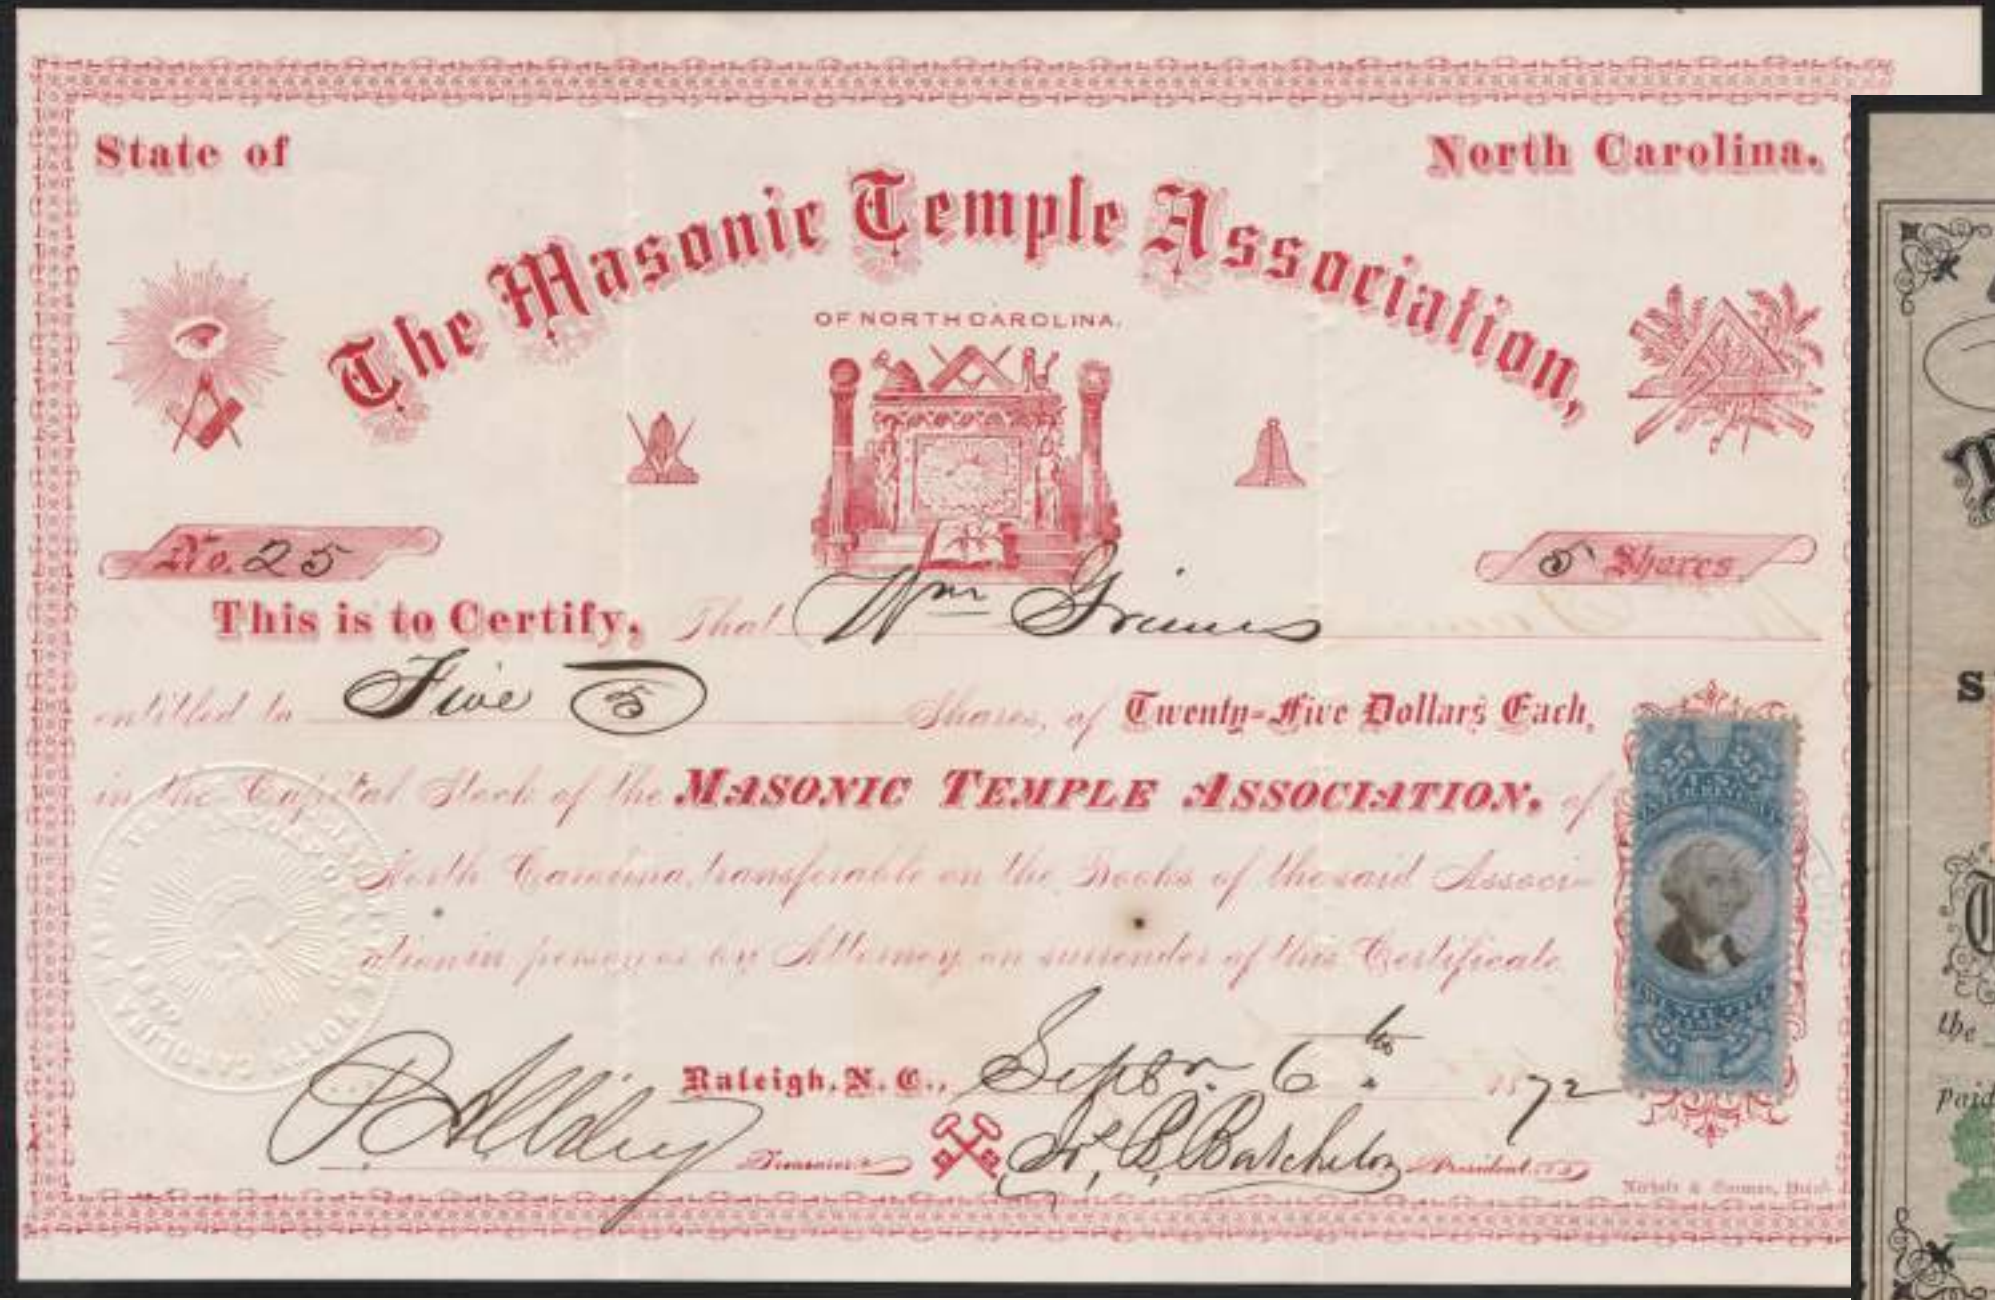 State of North Carolina.
The Masonic Temple Association,
OF NORTH CAROLINA.
No. 25
5 Shares
This is to Certify, That Wm Grimes
entitled to Five 5 Shares, of Twenty-Five Dollars Each,
in the Capital Stock of the MASONIC TEMPLE ASSOCIATION, of
North Carolina, transferable on the Books of the said Associ-
ation in person or by Attorney on surrender of this Certificate
Raleigh, N. C., Septbr. 6th 1872
Treasurer
B. Batchelor President
25 U.S. 25
NORTH CAROLINA
1870
Nichols & Gorman,
S
the
paid